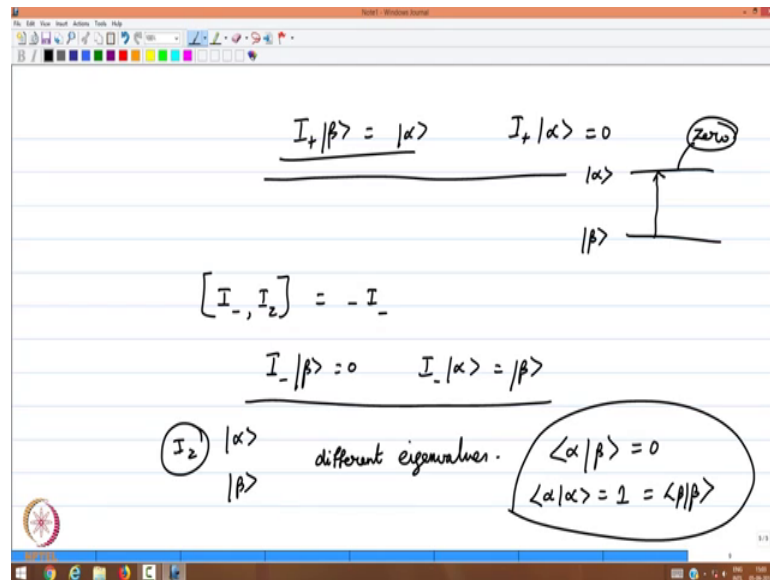 Note1 - Windows Journal
File Edit View Insert Actions Tools Help
I₊|β⟩ = |α⟩ I₊|α⟩ = 0 zero
|α⟩
|β⟩
[I₋, I_z] = - I₋
I₋|β⟩ = 0 I₋|α⟩ = |β⟩
I_z |α⟩ different eigenvalues. ⟨α|β⟩ = 0
|β⟩ ⟨α|α⟩ = 1 = ⟨β|β⟩
NPTEL